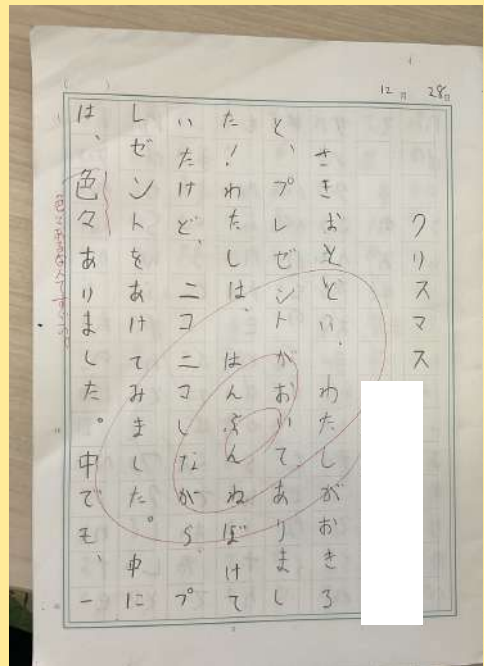 12月 28日
クリスマス
さきおととい、わたしがおきる
と、プレゼントがおいてありまし
た!わたしは、はんぶんねぼけて
いたけど、ニコニコしながら、プ
レゼントをあけてみました。中に
は、色々ありました。中でも、一